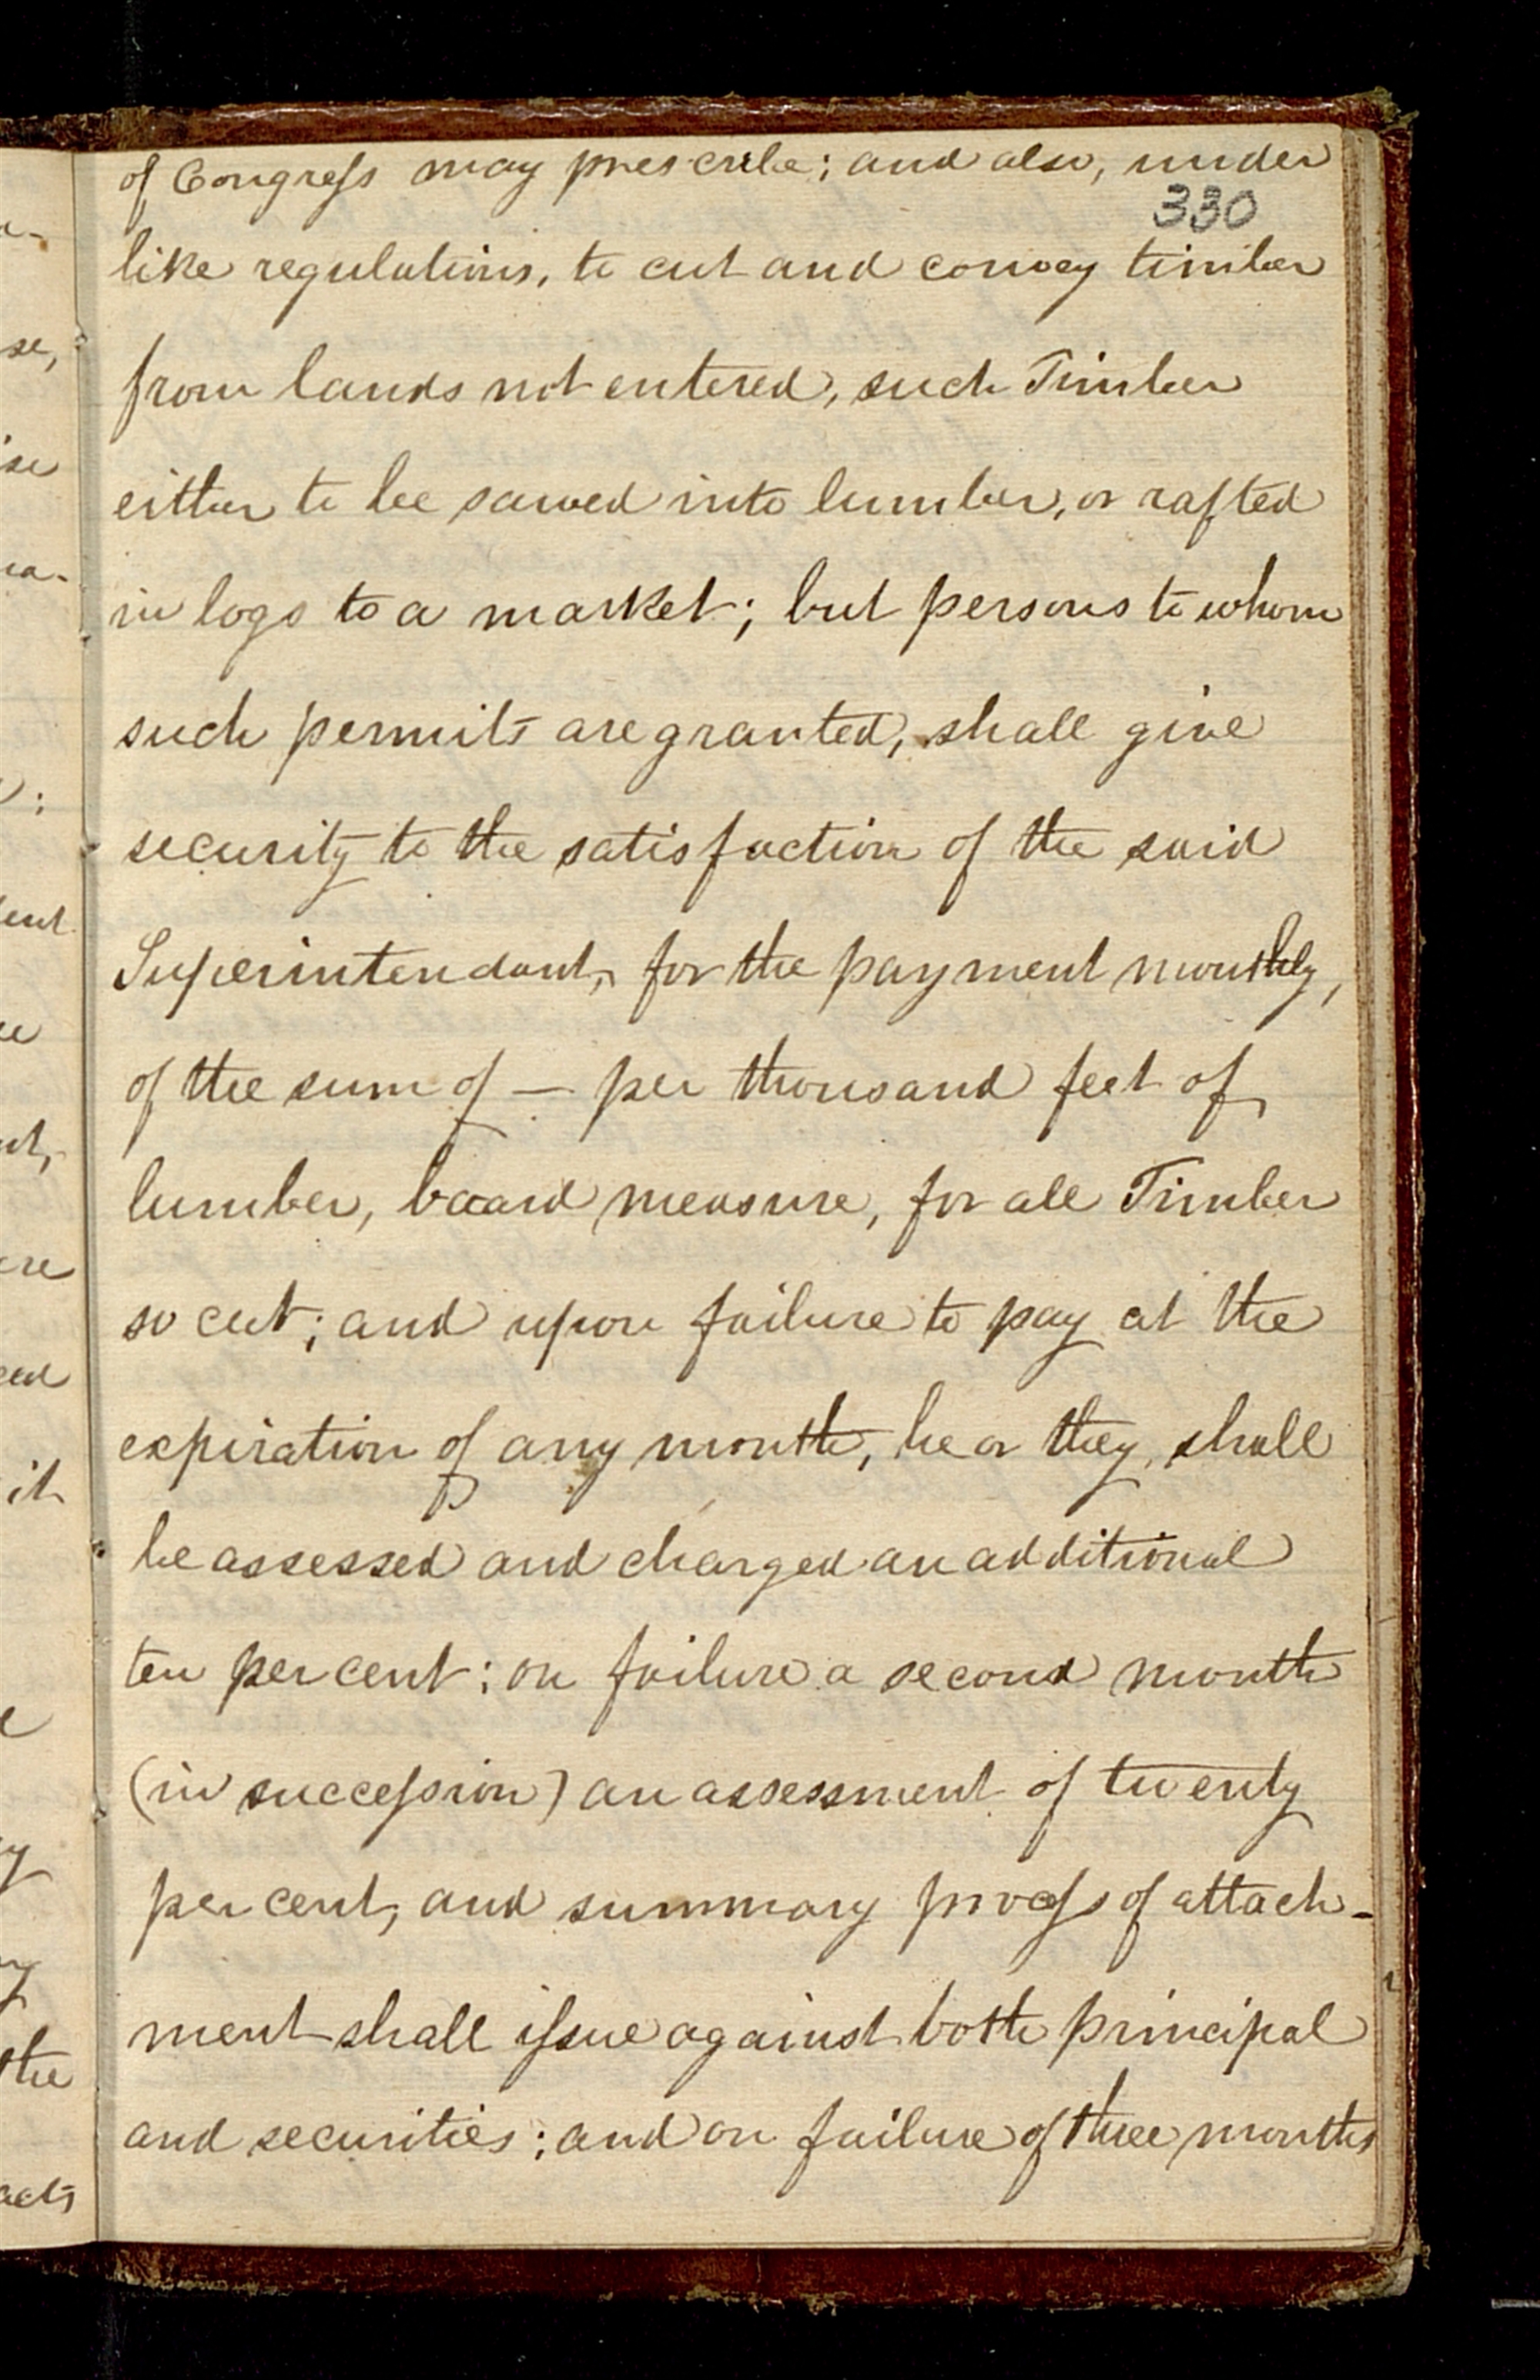 of Congress may prescribe; and also, under
330
like regulations, to cut and convey timber
from lands not entered, such Timber
either to be sawed into lumber, or rafted
in logs to a market; but persons to whom
such permits are granted, shall give
security to the satisfaction of the said
Superintendant, for the payment monthly,
of the sum of — per thousand feet of
lumber, board measure, for all Timber
so cut; and upon failure to pay at the
expiration of any month, he or they, shall
be assessed and charged an additional
ten per cent: on failure a second month
(in succession) an assessment of twenty
per cent, and summary process of attach-
ment shall issue against both principal
and securities; and on failure of three months
se,
ise
ent
ere
it
the
acts